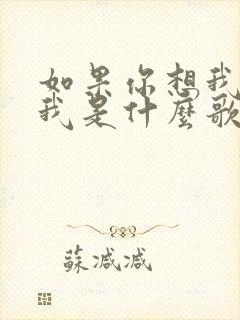 如果你想我
我是什麼歌
蘇减减